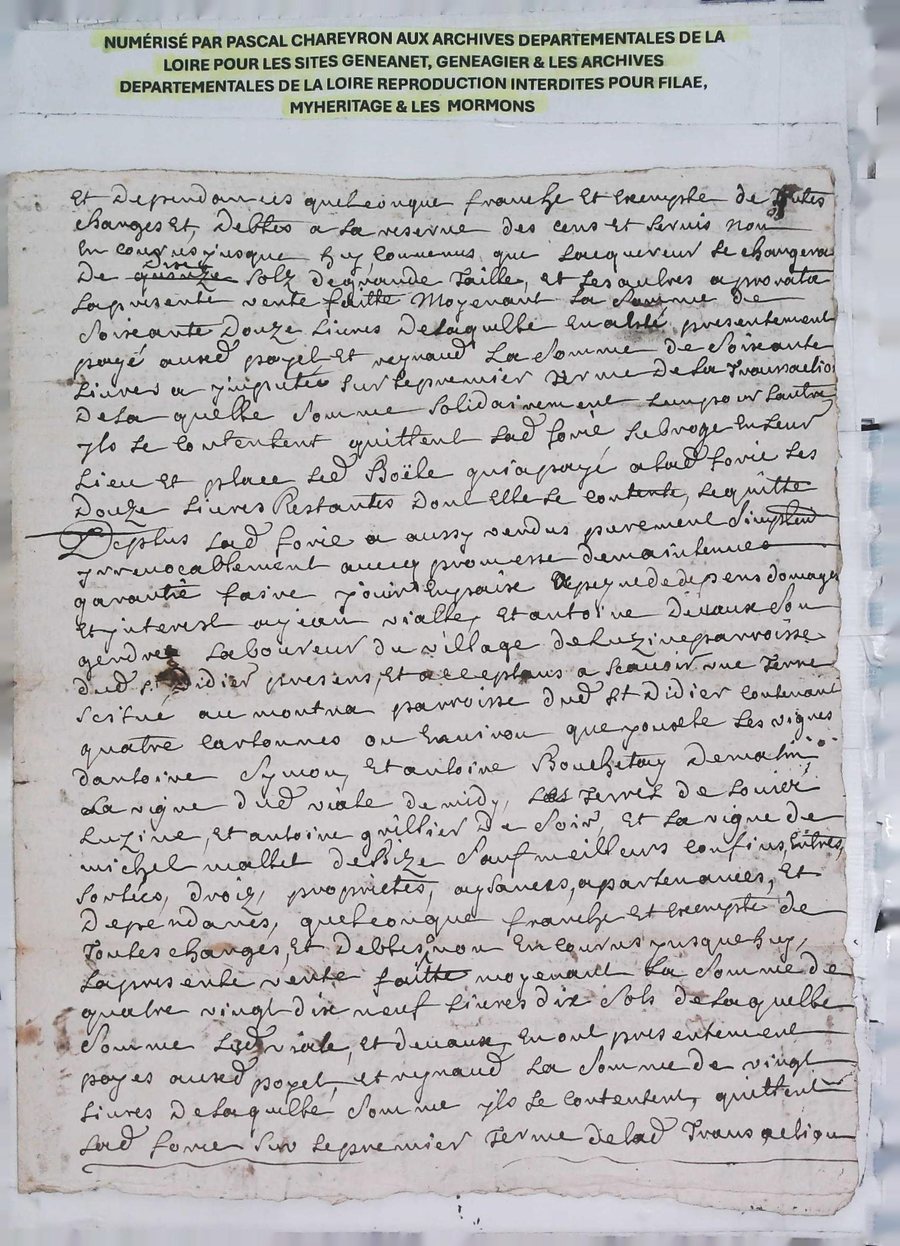 NUMÉRISÉ PAR PASCAL CHAREYRON AUX ARCHIVES DEPARTEMENTALES DE LA
LOIRE POUR LES SITES GENEANET, GENEAGIER & LES ARCHIVES
DEPARTEMENTALES DE LA LOIRE REPRODUCTION INTERDITES POUR FILAE,
MYHERITAGE & LES MORMONS
Et Dependances quelconque franche Et Exempte de toutes
charges Et, Debtes a La reserve des cens Et servis non
En courus jusque huy Convenus que Lacquereur se chargera
Dix
De quinze Solz de grande Taille, et Les autres a prorata
La presente vente faitte Moyenant La Somme de
Soixante Douze Livres De laquelle En a esté presentement
payé ausd poyet Et reynaud La Somme de Soixante
Livres a jmputée Sur Le premier terme De La Transaction
De La quelle Somme Solidairement Lun pour Lautre
yls se Contentent quittent Lad forie Subroge En Leur
Lieu Et place Led Boële qui a payé a Lad forie Les
Douze Livres Restantes Dont Elle se Contente, Le quitte
De plus Lad forie a aussy vendus purement Simplement
yrrevocablement avecq promesse de maintenue
garantie faire jouir En paise a peyne de depens domages
Et jnterest a jean vialle, Et antoine Devaux Son
gendre Laboureur du village de Luzine parroisse
dud st Didier presens, Et acceptans a Scauoir vne Terre
Scitue au montna parroisse dud St Didier Contenant
quatre Cartonnes ou Environ que jouxte Les vignes
dantoine Symon, Et antoine Bouchetay De matin
La vigne dud viale de midy, Les Terres de Louis
Luzine, Et antoine grillier De Soir, Et La vigne de
michel mallet De Bize Sauf meilleurs Confins, Entrés,
Sorties, droiz, proprietés, aysances, apartenances, Et
Dependances, quelconque franche Et Exempte de
Toutes charges, Et Debtes non En Courus jusque huy,
La presente vente faitte moyenant La Somme de
quatre vingt dix neuf Livres dix Sols de La quelle
Somme Lesd viale, Et devaux, En ont presentement
payes ausd poyet, et reynaud La Somme de vingt
Livres De La quelle Somme yls Se Contentent, quittent
Lad forie Sur Le premier Terme de Lad Transaction